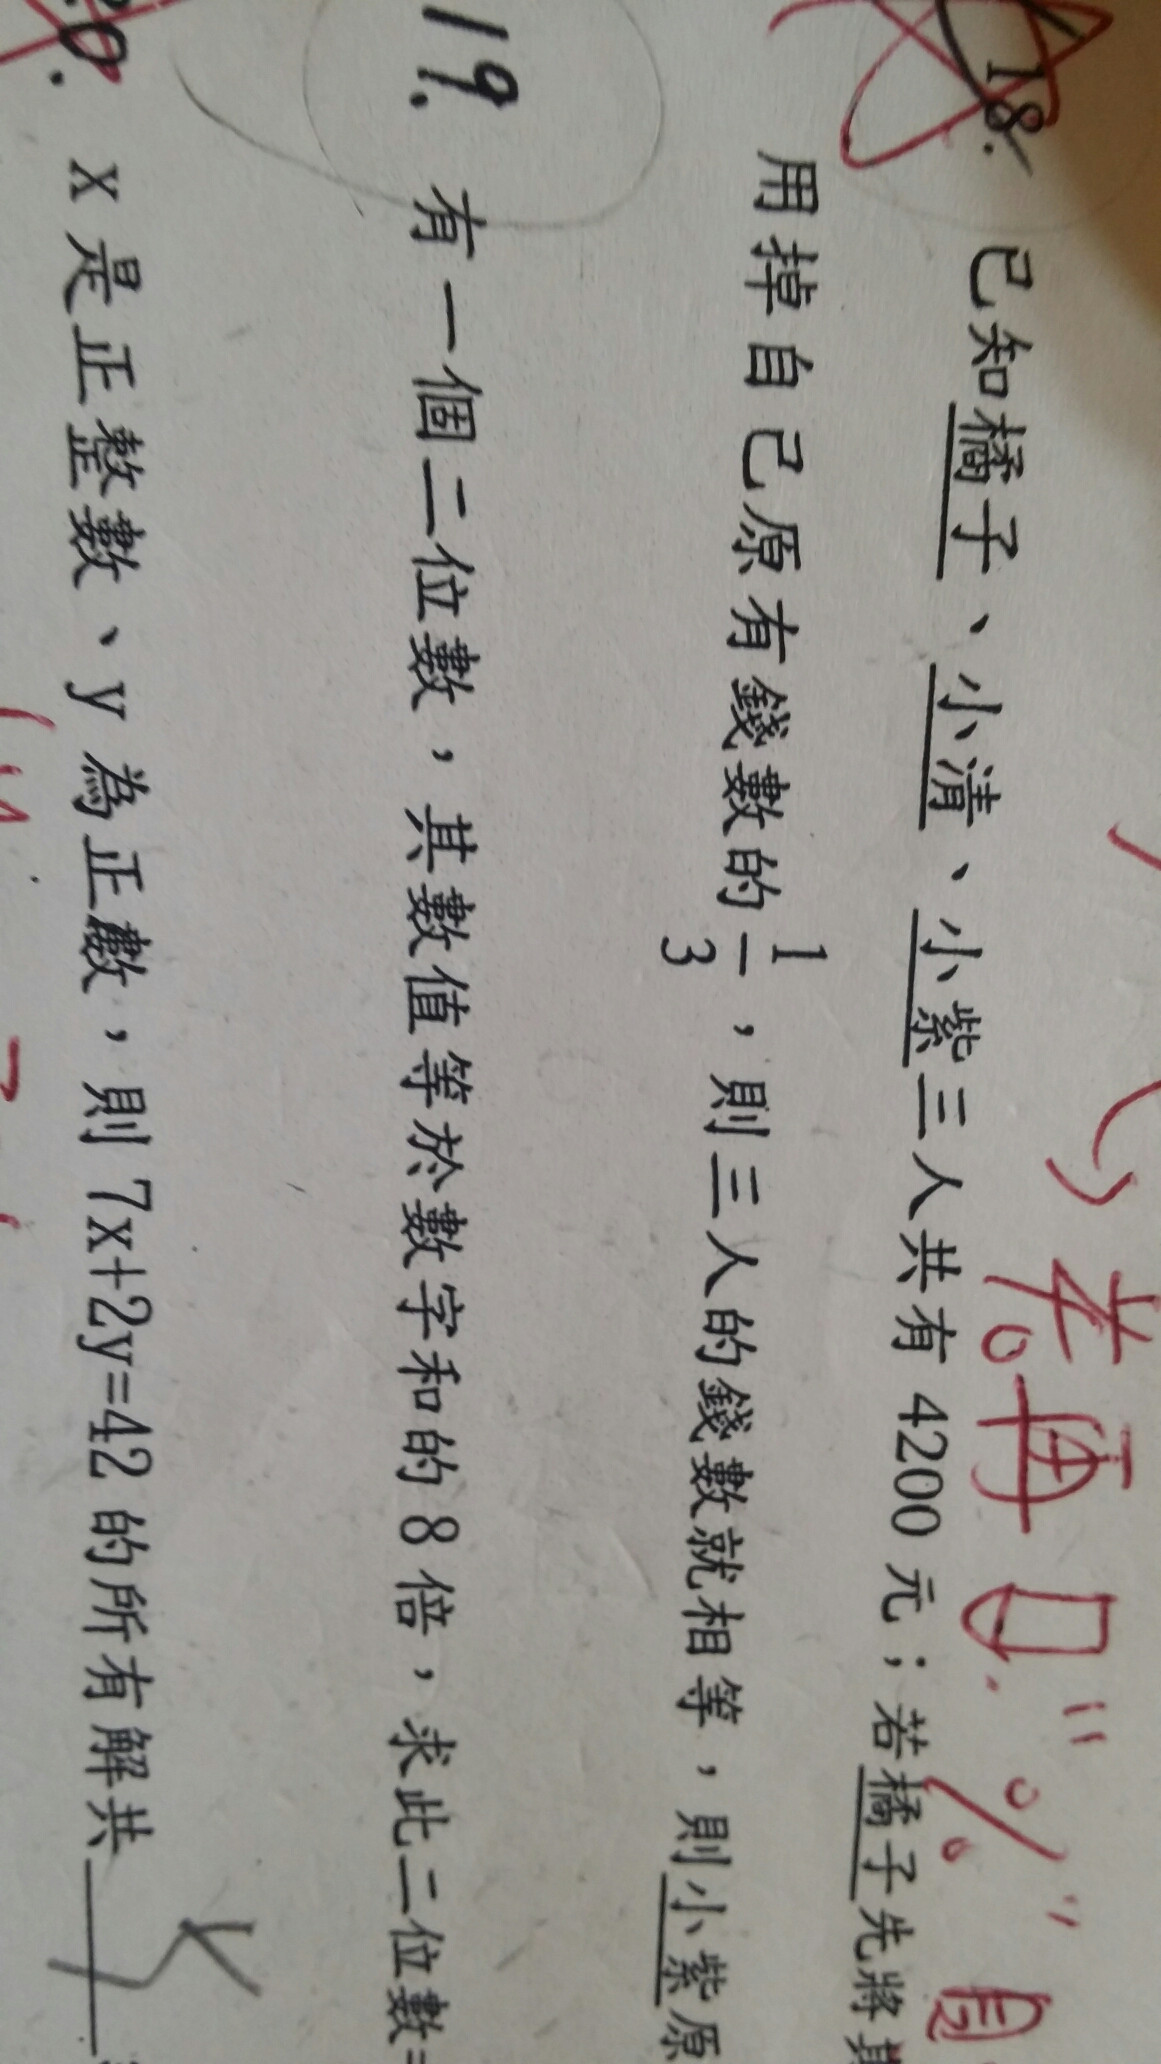 考再
18. 已知橘子、小清、小紫三人共有 4200 元；若橘子先將其
用掉自己原有錢數的 1/3，則三人的錢數就相等，則小紫原
19. 有一個二位數，其數值等於數字和的 8 倍，求此二位數=
20. x 是正整數、y 為正數，則 7x+2y=42 的所有解共